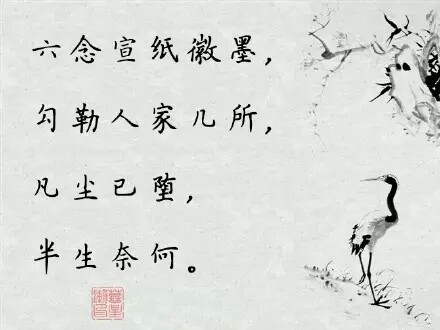 六念宣纸徽墨，
勾勒人家几所，
凡尘已堕，
半生奈何。